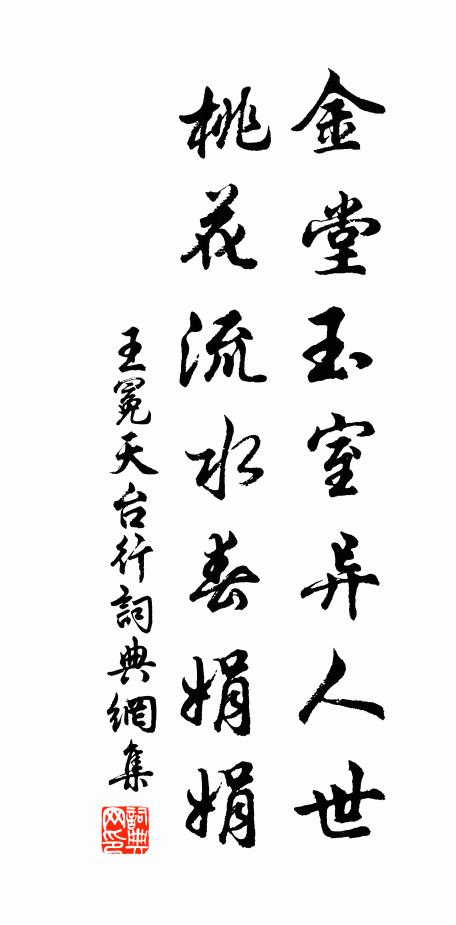 金堂玉室异人世
桃花流水春娟娟
王冕天台行詞典網集
詞典网印